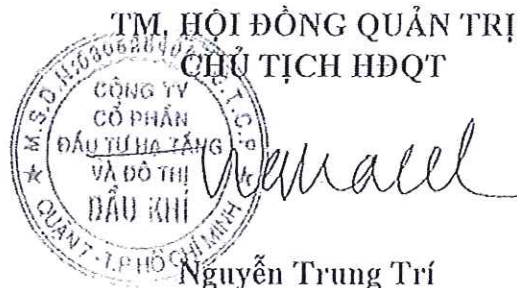 TM. HỘI ĐỒNG QUẢN TRỊ
CHỦ TỊCH HĐQT
CÔNG TY
CỔ PHẦN
ĐẦU TƯ HẠ TẦNG
VÀ ĐÔ THỊ
DẦU KHÍ
QUẬN 7 - T.P HỒ CHÍ MINH
Nguyễn Trung Trí